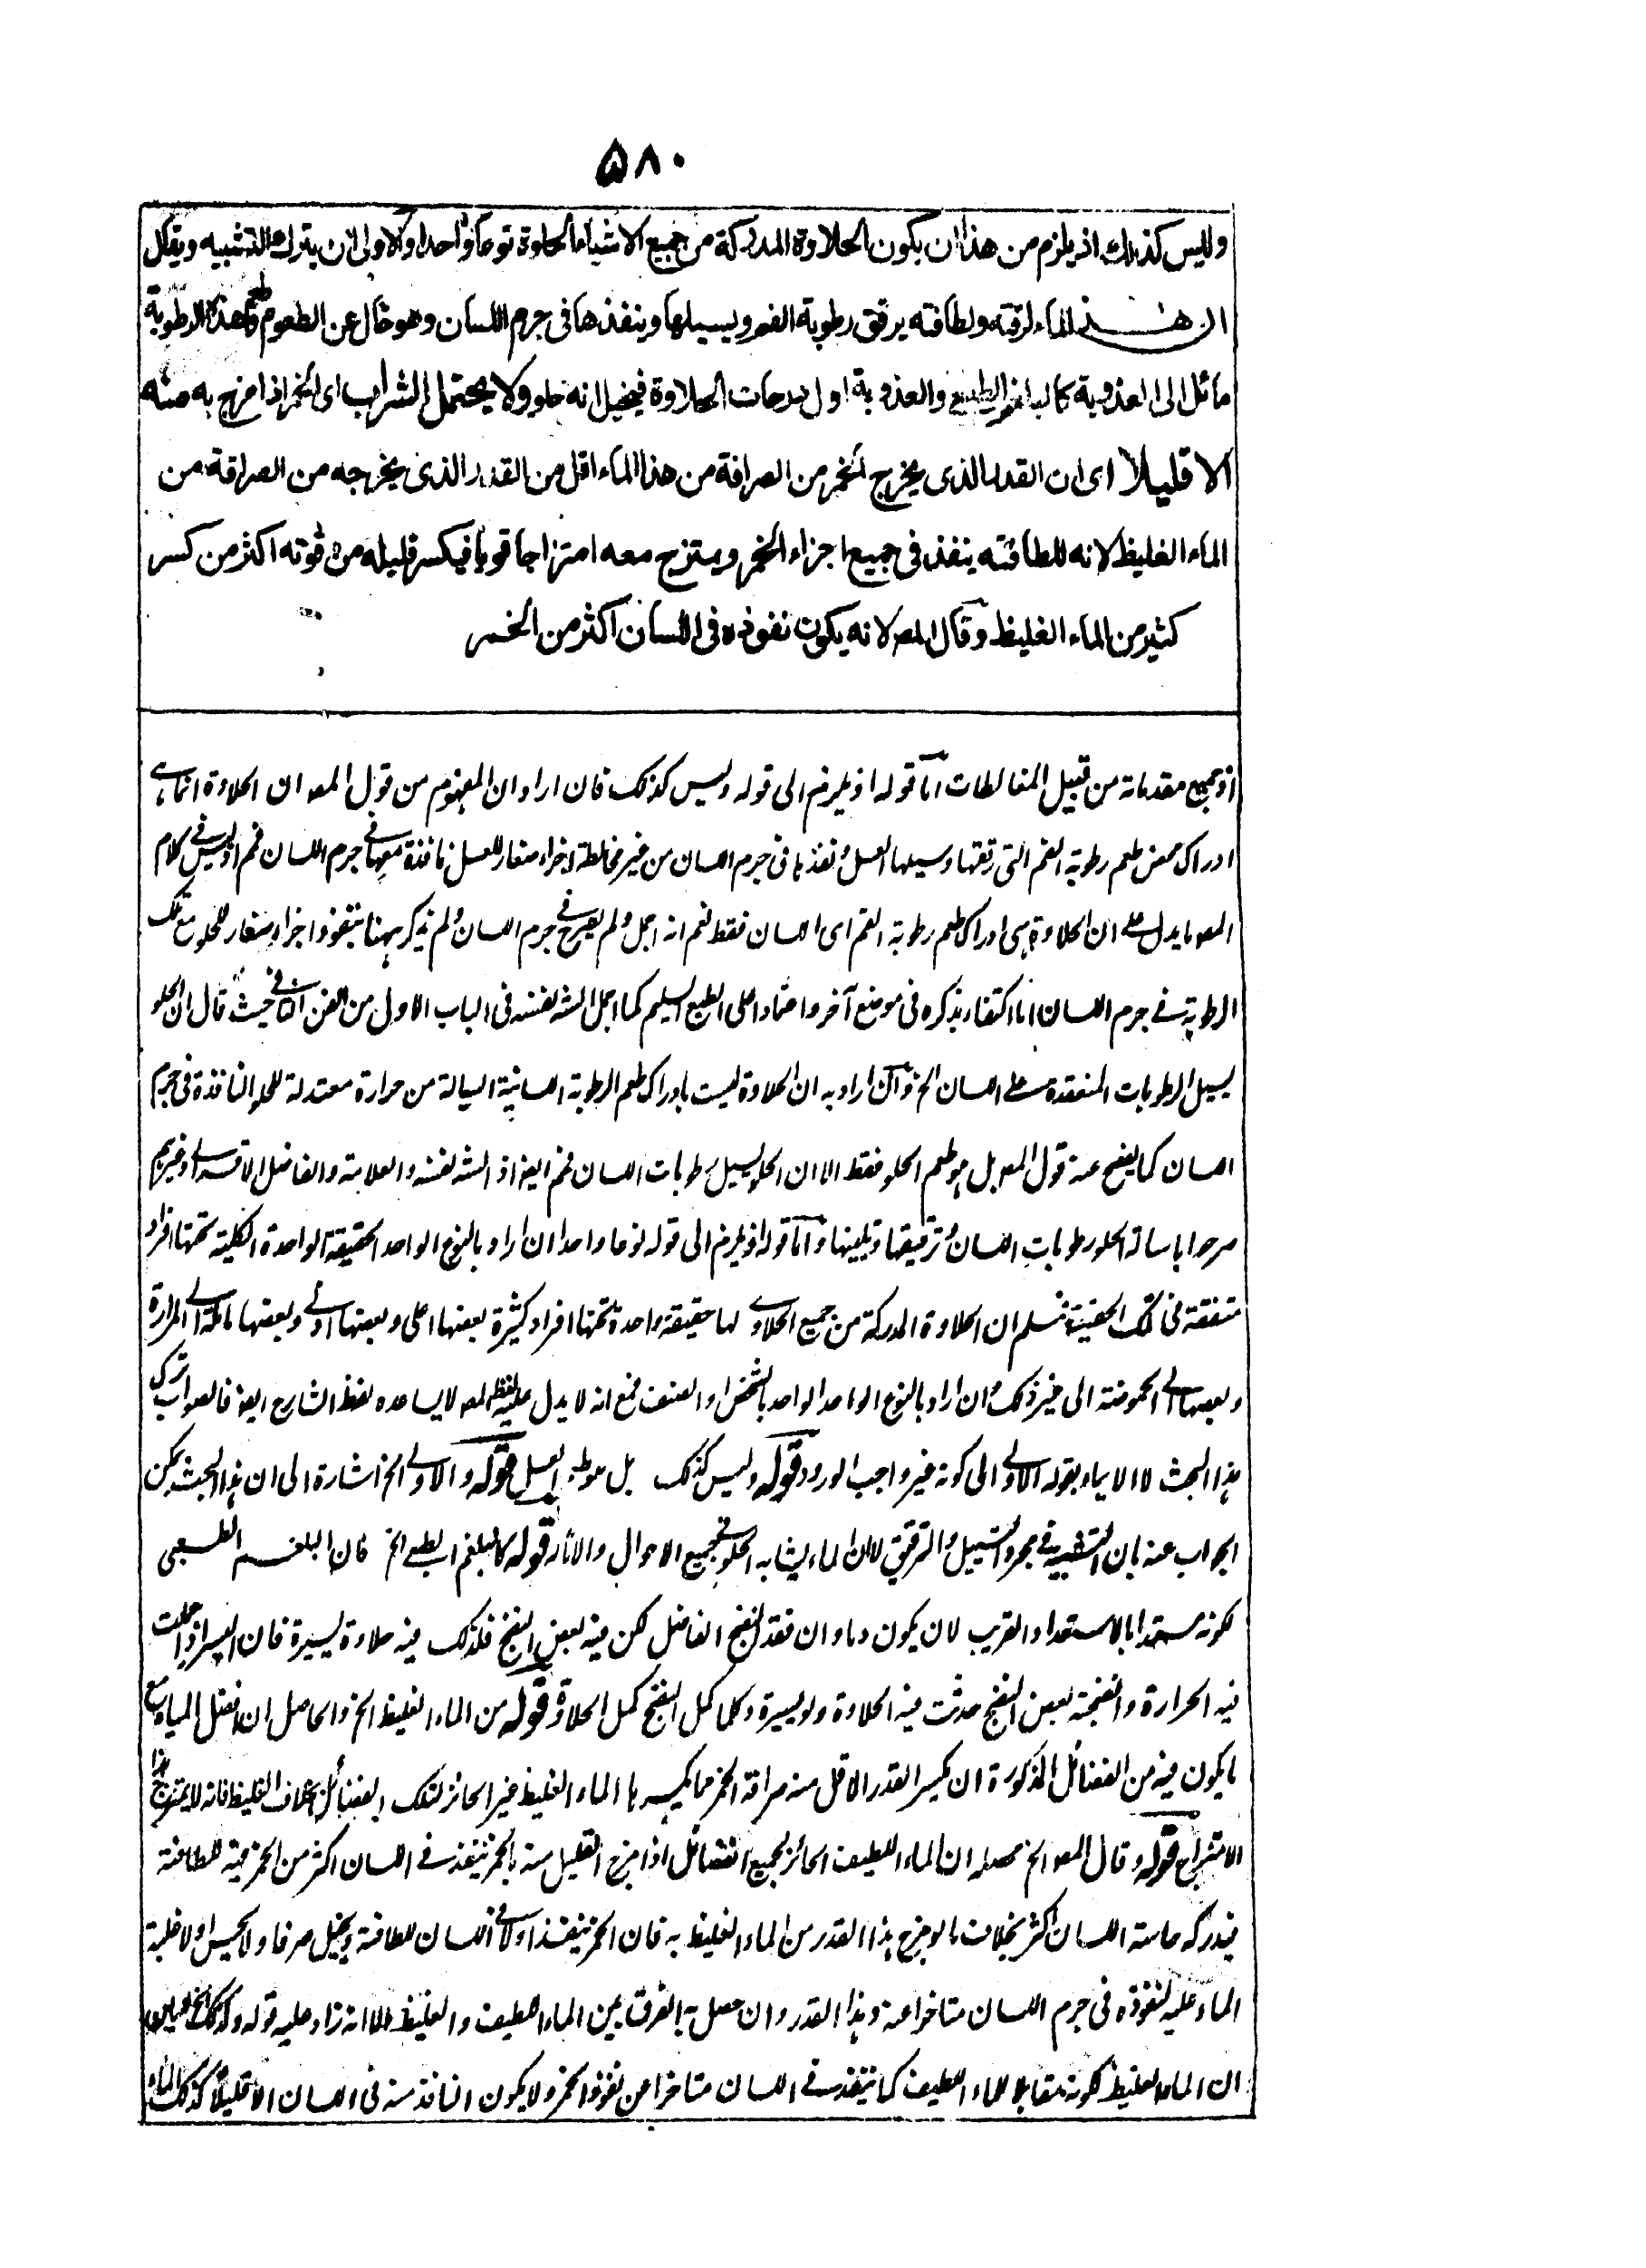 ۵۸۰
وليس كذلك اذ يلزم من هذا ان يكون الحلاوة المدركة من جميع الاشياء الحلوة نوعا واحدا والاولى ان يترك التشبيه ويقال
ان هذا الماء لرقته ولطافته يرقق رطوبة الفم ويسيلها وينفذها فى جرم اللسان وهو خال عن الطعوم وهذه الرطوبة
مائل الى العذوبة كالبلغم الطبيعى والعذوبة اول درجات الحلاوة فيخيل انه حلو ولا يحتمل الشراب اى الخمر اذا مزج به منه
الا قليلا اى ان القدر الذى يخرج الخمر من الصرافة من هذا الماء اقل من القدر الذى يخرجه من الصرافة من
الماء الغليظ لانه للطافته ينفذ فى جميع اجزاء الخمر ويمتزج معه امتزاجا قويا فيكسر قليله من قوته اكثر من كسر
كثير من الماء الغليظ وقال المصـ لانه يكون نفوذه فى اللسان اكثر من الخمر
اذ جميع مقدماته من قبيل المغالطات اما قوله اذ يلزم الى قوله وليس كذلك فان اراد ان المفهوم من قول المصـ ان الحلاوة انما هى
ادراك محض طعم رطوبة الفم التى رققتها وسيلها العسل ونفذها فى جرم اللسان من غير مخالطة اجزاء صغار للعسل نافذة معها فى جرم اللسان فمم اذ ليس فى كلام
المصـ ما يدل على ان الحلاوة هى ادراك طعم رطوبة الفم اى اللسان فقط نعم انه اجمل ولم يصرح فى جرم اللسان ولم يذكر ههنا بنفوذ اجزاء صغار للحلو مع تلك
الرطوبة فى جرم اللسان انما اكتفاء بذكره فى موضع آخر واعتمادا على الطبع السليم كما اجمل الشـ نفسه فى الباب الاول من الفن الثانى حيث قال ان الحلو
يسيل الرطوبات المنعقدة على اللسان الخ وان اراد به ان الحلاوة ليست بادراك طعم الرطوبة اللسانية السيالة من حرارة معتدلة للحلو النافذة فى جرم
اللسان كما يفصح عنه قول المصـ بل هو طعم الحلو فقط الا ان الحلو يسيل رطوبات اللسان فمم ايضا اذ الشـ نفسه والعلامة والفاضل الاقسرائى وغيرهم
صرحوا باسالة الحلو رطوبات اللسان وترقيقها وتليينها واما قوله اذ يلزم الى قوله نوعا واحدا ان اراد بالنوع الواحد الحقيقة الواحدة الكلية تحتها افراد
متفقة فى تلك الحقيقة فنسلم ان الحلاوة المدركة من جميع الحلاوى لها حقيقة واحدة تحتها افراد كثيرة بعضها اعلى وبعضها ادنى وبعضها مائلة الى المرارة
وبعضها الى الحموضة الى غير ذلك وان اراد بالنوع الواحد الواحد بالشخص او الصنف فمع انه لا يدل عليه لفظ المصـ لا يساعده لفظ الشارح ايضا فالصواب ترك
هذا البحث لا الايماء بقوله الاولى الى كونه غير واجب الورود قوله وليس كذلك بل هو طعم العسل قوله والاولى الخ اشارة الى ان هذا البحث يمكن
الجواب عنه بان التشبيه فى مجرد التسييل والترقيق لا ان الماء يشابه الحلو فى جميع الاحوال والآثار قوله كالبلغم الطبيعى الخ فان البلغم الطبيعى
لكونه مستعدا بالاستعداد القريب لان يكون دما وان فقد النضج الفاضل لكن فيه بعض النضج فلذلك فيه حلاوة يسيرة فان البسر اذا عملت
فيه الحرارة وانضجته بعض النضج حدثت فيه الحلاوة ولو يسيرة وكلما كمل النضج كمل الحلاوة قوله من الماء الغليظ الخ والحاصل ان افضل المياه مع
ما يكون فيه من الفضائل المذكورة ان يكسر القدر الاقل منه صرافة الخمر مما يكسرها الماء الغليظ غير الحائز لتلك الفضائل بخلاف الغليظ فانه لا يمتزج هذا
الامتزاج قوله وقال المصـ الخ محصله ان الماء اللطيف الحائز لجميع الفضائل اذا مزج القليل منه بالخمر ينفذ فى اللسان اكثر من الخمرية للطافته
فيدركه حاسة اللسان اكثر بخلاف ما لو مزج هذا القدر من الماء الغليظ به فان الخمر ينفذ اولا فى اللسان للطافته ويخيل صرفا ولا يحس اولا غلبة
الماء عليه لنفوذه فى جرم اللسان متاخرا عنه وهذا القدر وان حصل به الفرق بين الماء اللطيف والغليظ الا انه زاد عليه قوله وكذلك الخ
ان الماء الغليظ لكونه مقابلا للماء اللطيف كما ينفذ فى اللسان متاخرا عن نفوذ الخمر ولا يكون النافذ منه فى اللسان الا قليلا كذلك الماء